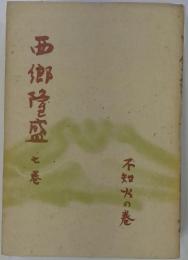 西郷隆盛 七巻
不知火の巻